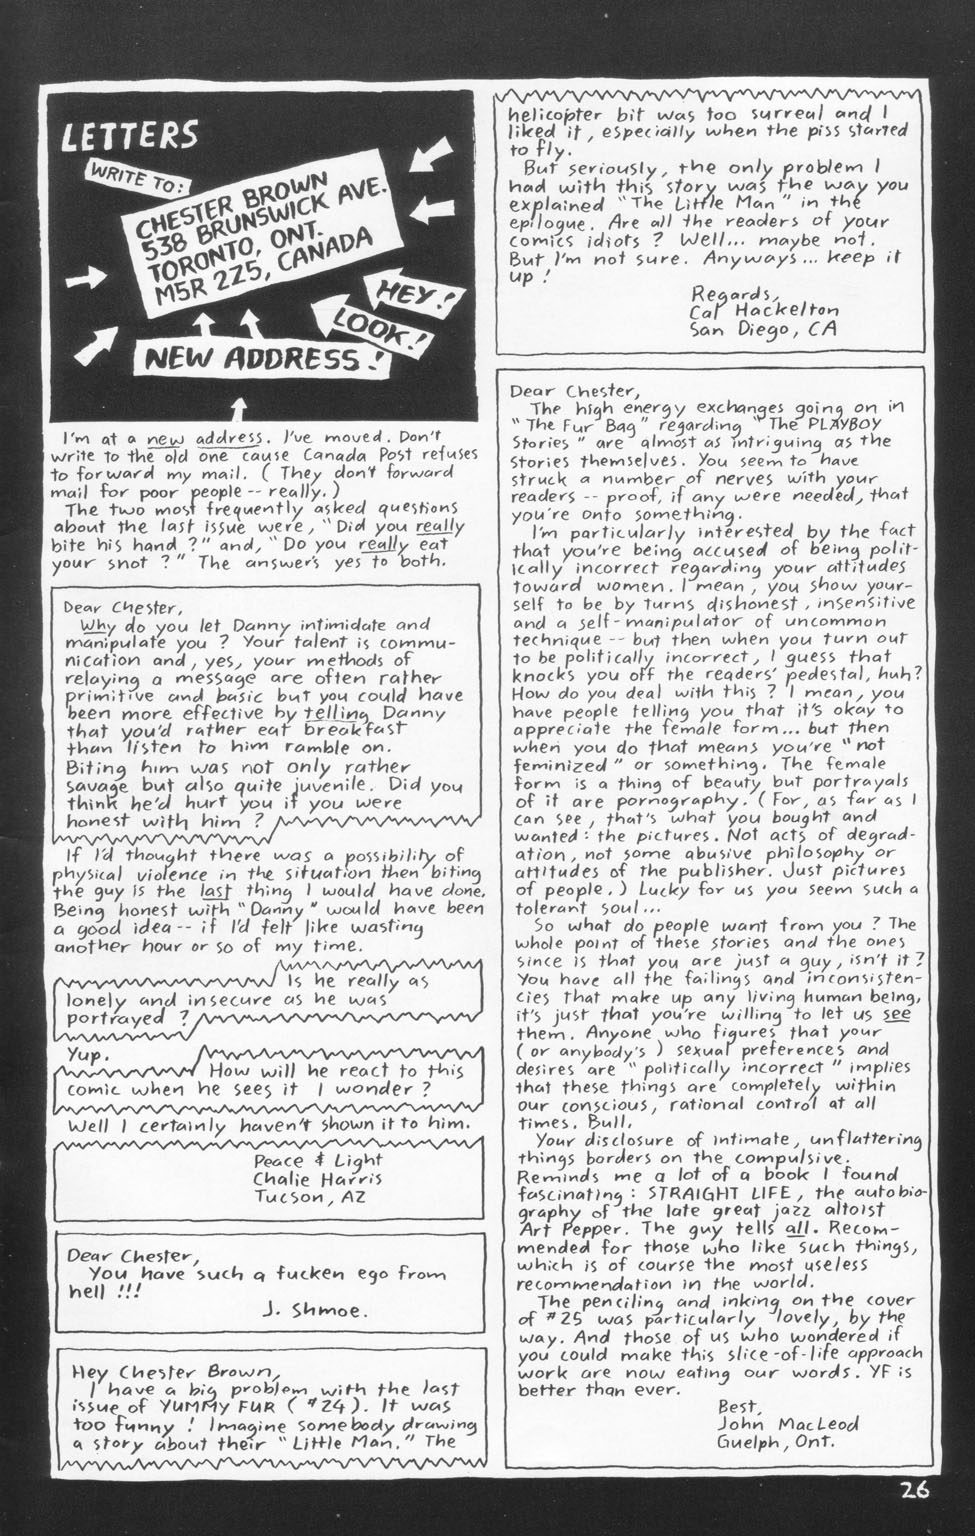 LETTERS
WRITE TO:
CHESTER BROWN
538 BRUNSWICK AVE.
TORONTO, ONT.
M5R 2Z5, CANADA
HEY!
LOOK!
NEW ADDRESS!
I'm at a new address. I've moved. Don't
write to the old one cause Canada Post refuses
to forward my mail. (They don't forward
mail for poor people -- really.)
The two most frequently asked questions
about the last issue were, "Did you really
bite his hand?" and, "Do you really eat
your snot?" The answer's yes to both.
Dear Chester,
Why do you let Danny intimidate and
manipulate you? Your talent is commu-
nication and, yes, your methods of
relaying a message are often rather
primitive and basic but you could have
been more effective by telling Danny
that you'd rather eat breakfast
than listen to him ramble on.
Biting him was not only rather
savage but also quite juvenile. Did you
think he'd hurt you if you were
honest with him?
If I'd thought there was a possibility of
physical violence in the situation then biting
the guy is the last thing I would have done.
Being honest with "Danny" would have been
a good idea -- if I'd felt like wasting
another hour or so of my time.
Is he really as
lonely and insecure as he was
portrayed?
Yup.
How will he react to this
comic when he sees it I wonder?
Well I certainly haven't shown it to him.
Peace & Light
Chalie Harris
Tucson, AZ
Dear Chester,
You have such a fucken ego from
hell!!!
J. Shmoe.
Hey Chester Brown,
I have a big problem with the last
issue of YUMMY FUR (#24). It was
too funny! Imagine somebody drawing
a story about their "Little Man." The
helicopter bit was too surreal and I
liked it, especially when the piss started
to fly.
But seriously, the only problem I
had with this story was the way you
explained "The Little Man" in the
epilogue. Are all the readers of your
comics idiots? Well... maybe not.
But I'm not sure. Anyways... keep it
up!
Regards,
Cal Hackelton
San Diego, CA
Dear Chester,
The high energy exchanges going on in
"The Fur Bag" regarding "The PLAYBOY
Stories" are almost as intriguing as the
stories themselves. You seem to have
struck a number of nerves with your
readers -- proof, if any were needed, that
you're onto something.
I'm particularly interested by the fact
that you're being accused of being polit-
ically incorrect regarding your attitudes
toward women. I mean, you show your-
self to be by turns dishonest, insensitive
and a self-manipulator of uncommon
technique -- but then when you turn out
to be politically incorrect, I guess that
knocks you off the readers' pedestal, huh?
How do you deal with this? I mean, you
have people telling you that it's okay to
appreciate the female form... but then
when you do that means you're "not
feminized" or something. The female
form is a thing of beauty but portrayals
of it are pornography. (For, as far as I
can see, that's what you bought and
wanted: the pictures. Not acts of degrad-
ation, not some abusive philosophy or
attitudes of the publisher. Just pictures
of people.) Lucky for us you seem such a
tolerant soul...
So what do people want from you? The
whole point of these stories and the ones
since is that you are just a guy, isn't it?
You have all the failings and inconsisten-
cies that make up any living human being,
it's just that you're willing to let us see
them. Anyone who figures that your
(or anybody's) sexual preferences and
desires are "politically incorrect" implies
that these things are completely within
our conscious, rational control at all
times. Bull.
Your disclosure of intimate, unflattering
things borders on the compulsive.
Reminds me a lot of a book I found
fascinating: STRAIGHT LIFE, the autobio-
graphy of the late great jazz altoist
Art Pepper. The guy tells all. Recom-
mended for those who like such things,
which is of course the most useless
recommendation in the world.
The penciling and inking on the cover
of #25 was particularly lovely, by the
way. And those of us who wondered if
you could make this slice-of-life approach
work are now eating our words. YF is
better than ever.
Best,
John MacLeod
Guelph, Ont.
26